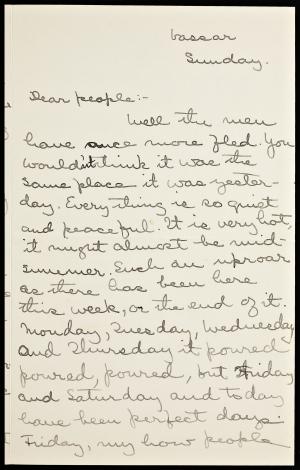 Vassar
Sunday.
Dear people:-
Well the men
have once more fled. You
wouldn't think it was the
same place it was yester-
day. Everything is so quiet
and peaceful. It is very hot,
it might almost be mid-
summer. Such an uproar
as there has been here
this week, or the end of it.
Monday, Tuesday, Wednesday
and Thursday it poured
poured, poured, but Friday
and Saturday and today
have been perfect days.
Friday, my how people